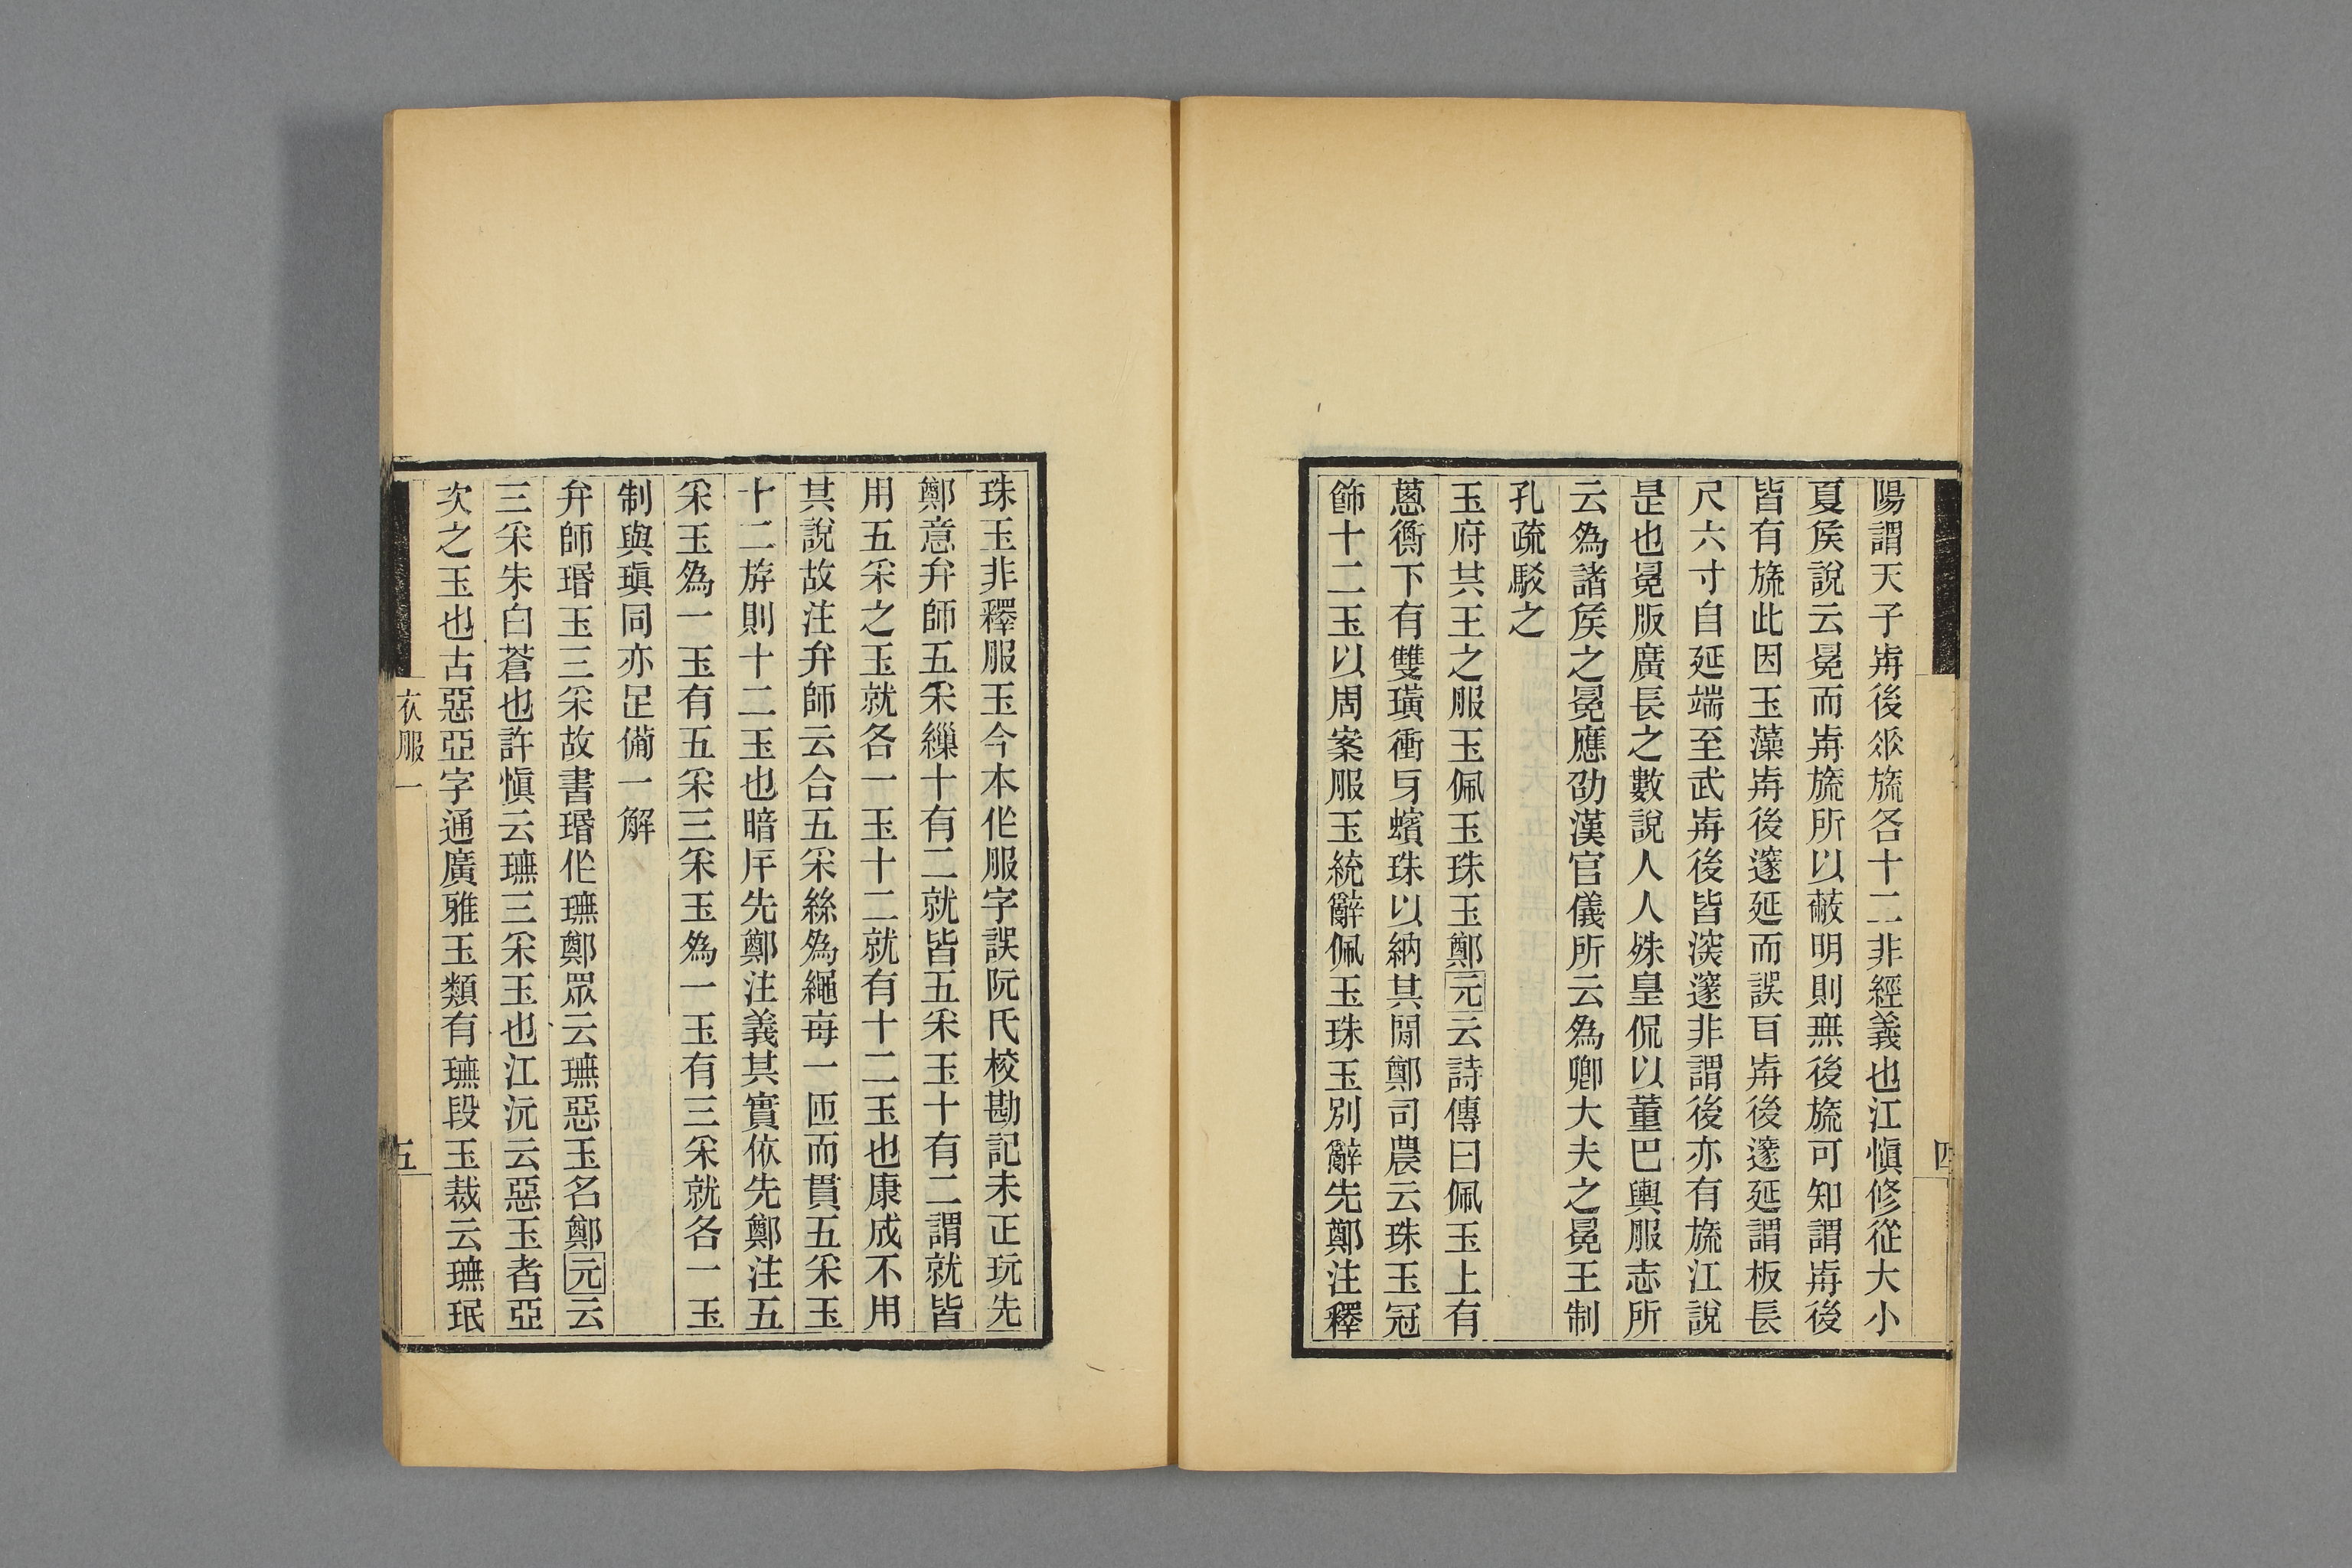 陽謂天子歬後𠂹旒各十二非經義也江愼修從大小
夏矦說云冕而歬旒所以蔽明則無後旒可知謂歬後
皆有旒此因玉藻歬後邃延而誤㠯歬後邃延謂板長
尺六寸自延端至武歬後皆深邃非謂後亦有旒江說
是也冕版廣長之數說人人殊皇侃以董巴輿服志所
云為諸矦之冕應劭漢官儀所云為卿大夫之冕王制
孔疏駁之
玉府共王之服玉佩玉珠玉鄭元云詩傳曰佩玉上有
蔥衡下有雙璜衝牙蠙珠以納其閒鄭司農云珠玉冠
飾十二玉以周案服玉統辭佩玉珠玉別辭先鄭注釋
四
珠玉非釋服玉今本作服字誤阮氏校勘記未正玩先
鄭意弁師五采繅十有二就皆五采玉十有二謂就皆
用五采之玉就各一玉十二就有十二玉也康成不用
其說故注弁師云合五采絲為繩每一匝而貫五采玉
十二斿則十二玉也暗斥先鄭注義其實依先鄭注五
采玉為一玉有五采三采玉為一玉有三采就各一玉
制與瑱同亦足備一解
弁師瑉玉三采故書瑉作璑鄭眾云璑惡玉名鄭元云
三采朱白蒼也許愼云璑三采玉也江沅云惡玉者亞
次之玉也古惡亞字通廣雅玉類有璑段玉裁云璑珉
衣服一
五